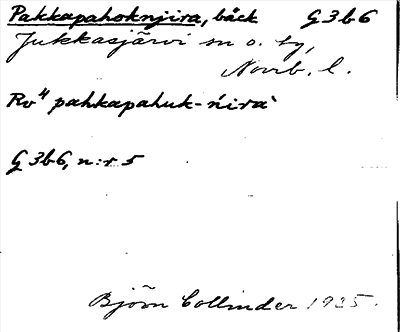 Pakkapahoknjira, bäck G 3 b 6
Jukkasjärvi sn o. tg,
Norrb. l.
Rv⁴ pahkapahuk-ńirà
G 3 b 6, n:r 5
Björn Collinder 1935.